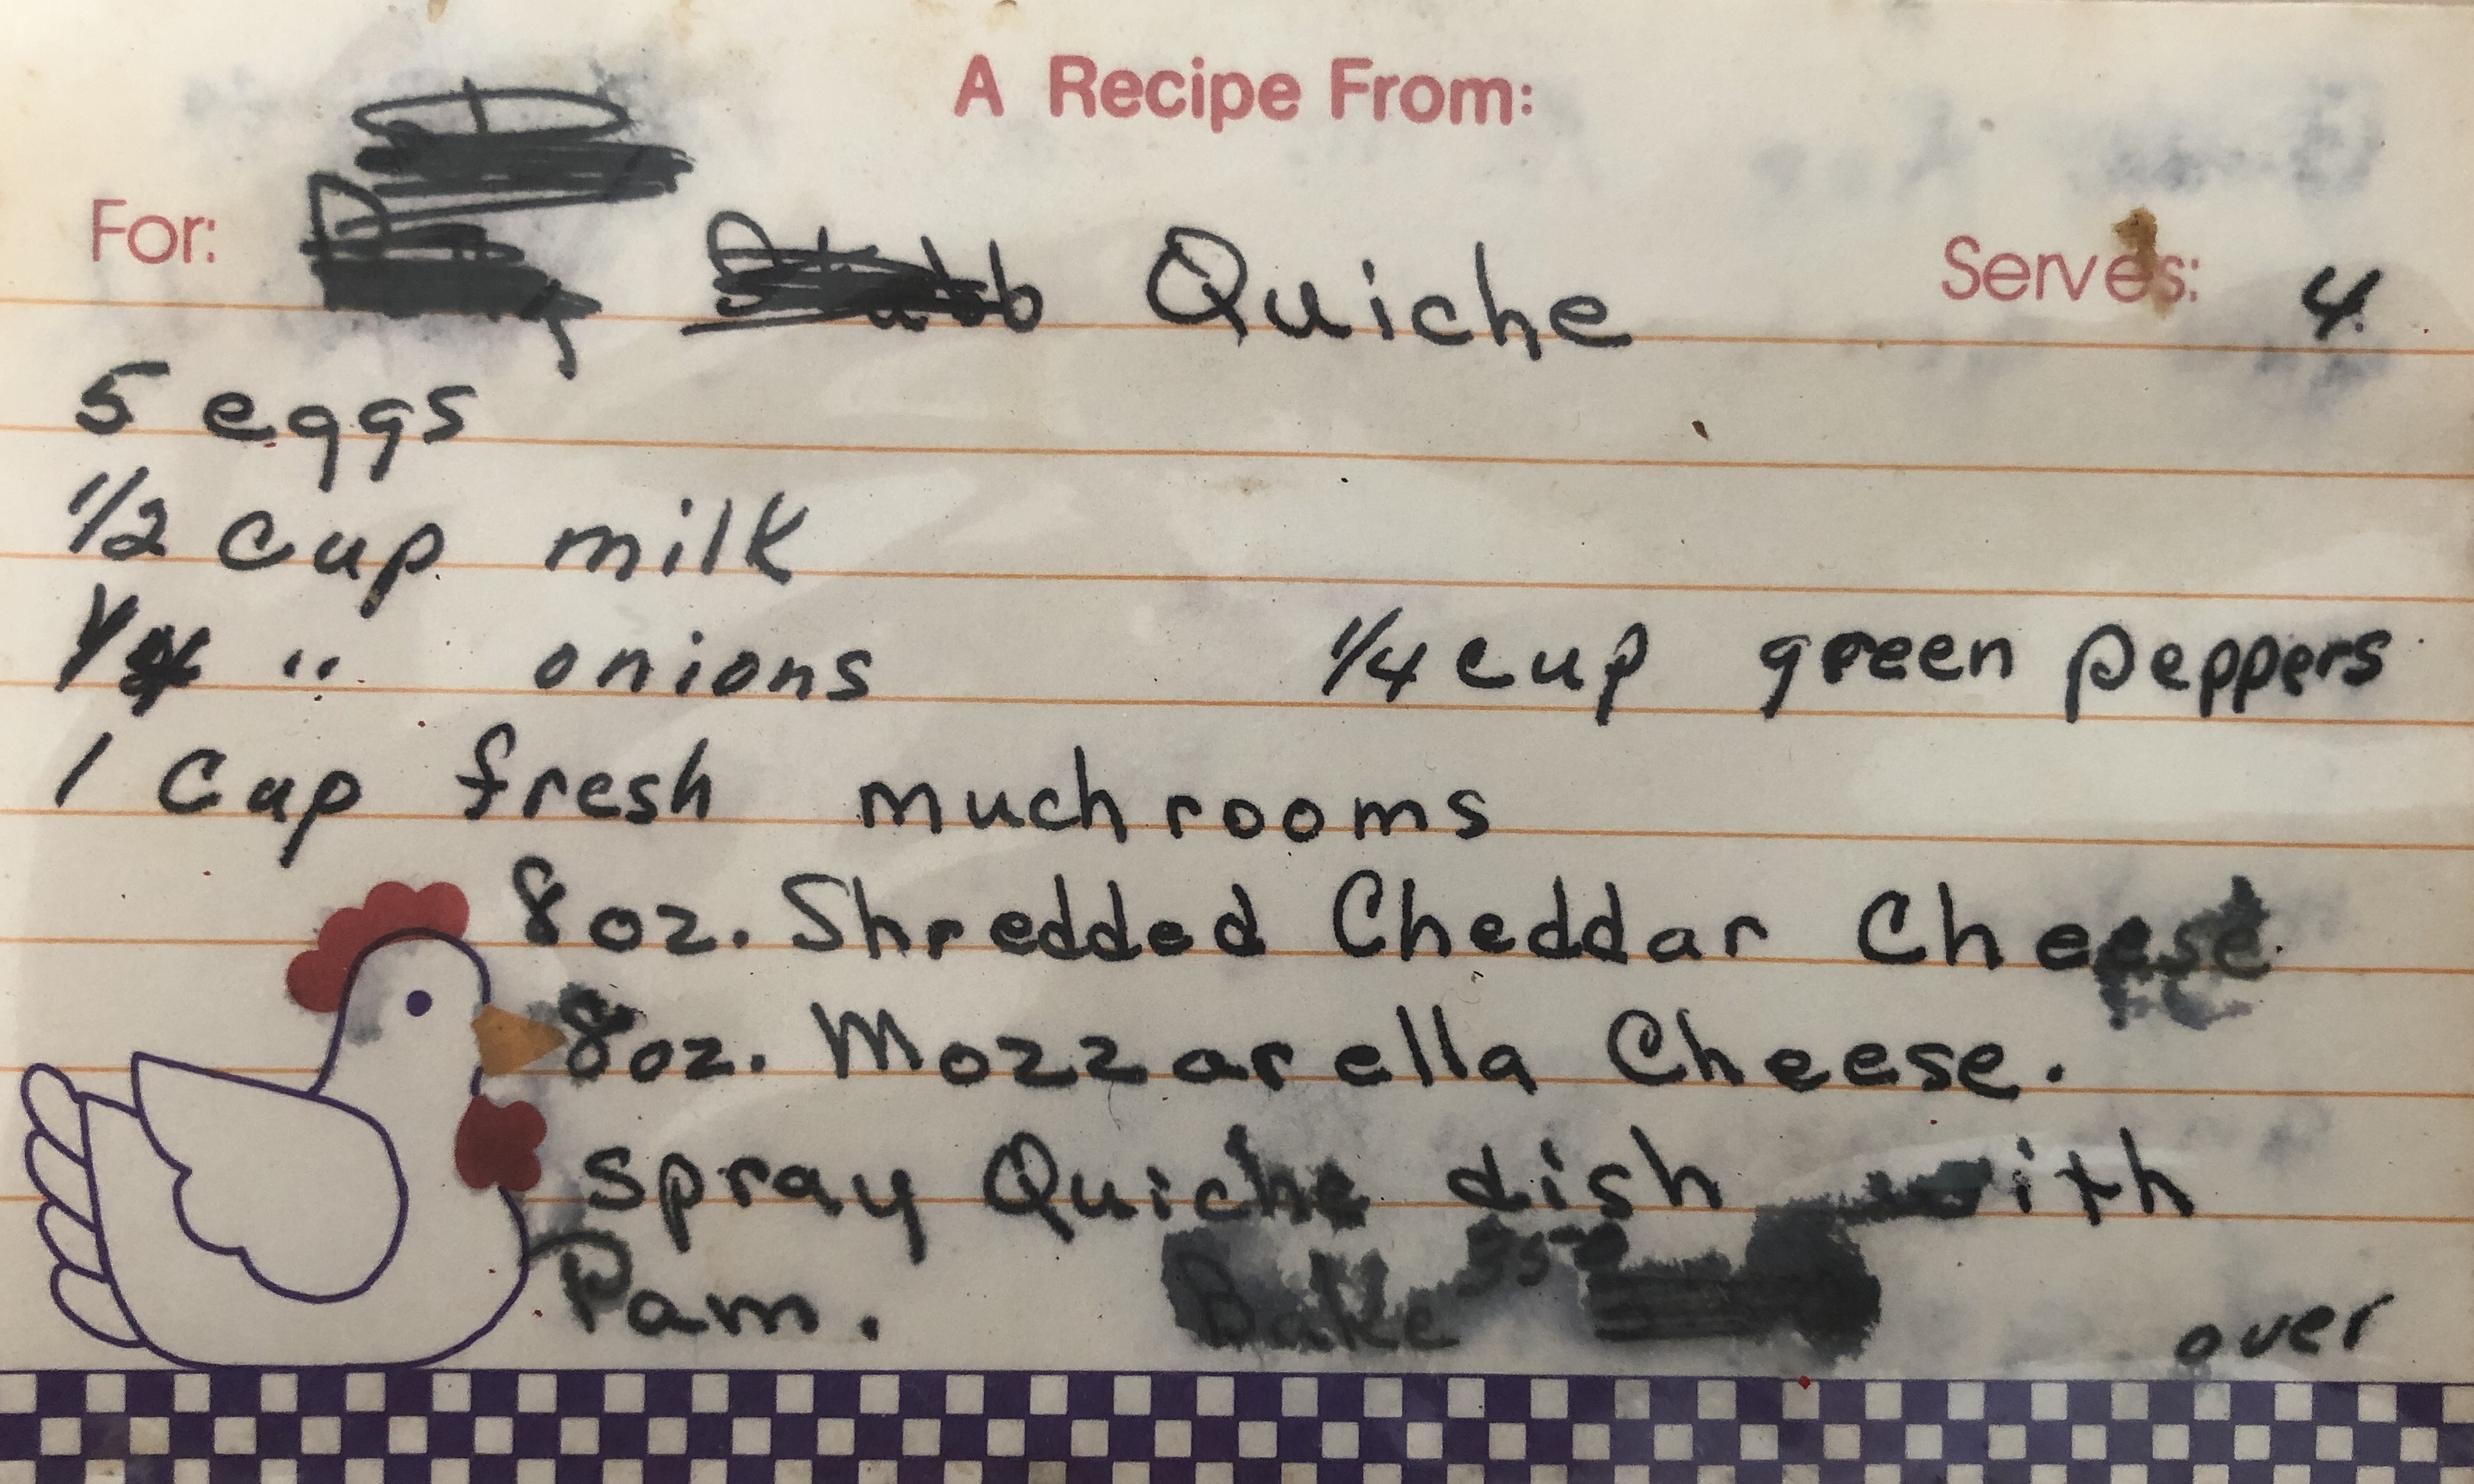 A Recipe From:
For: Quiche Serves: 4
5 eggs
1/2 cup milk
" onions 1/4 cup green peppers
1 Cup fresh muchrooms
8oz. Shredded Cheddar Cheese
8oz. Mozzarella Cheese.
spray Quiche dish with
Pam. Bake 350
over